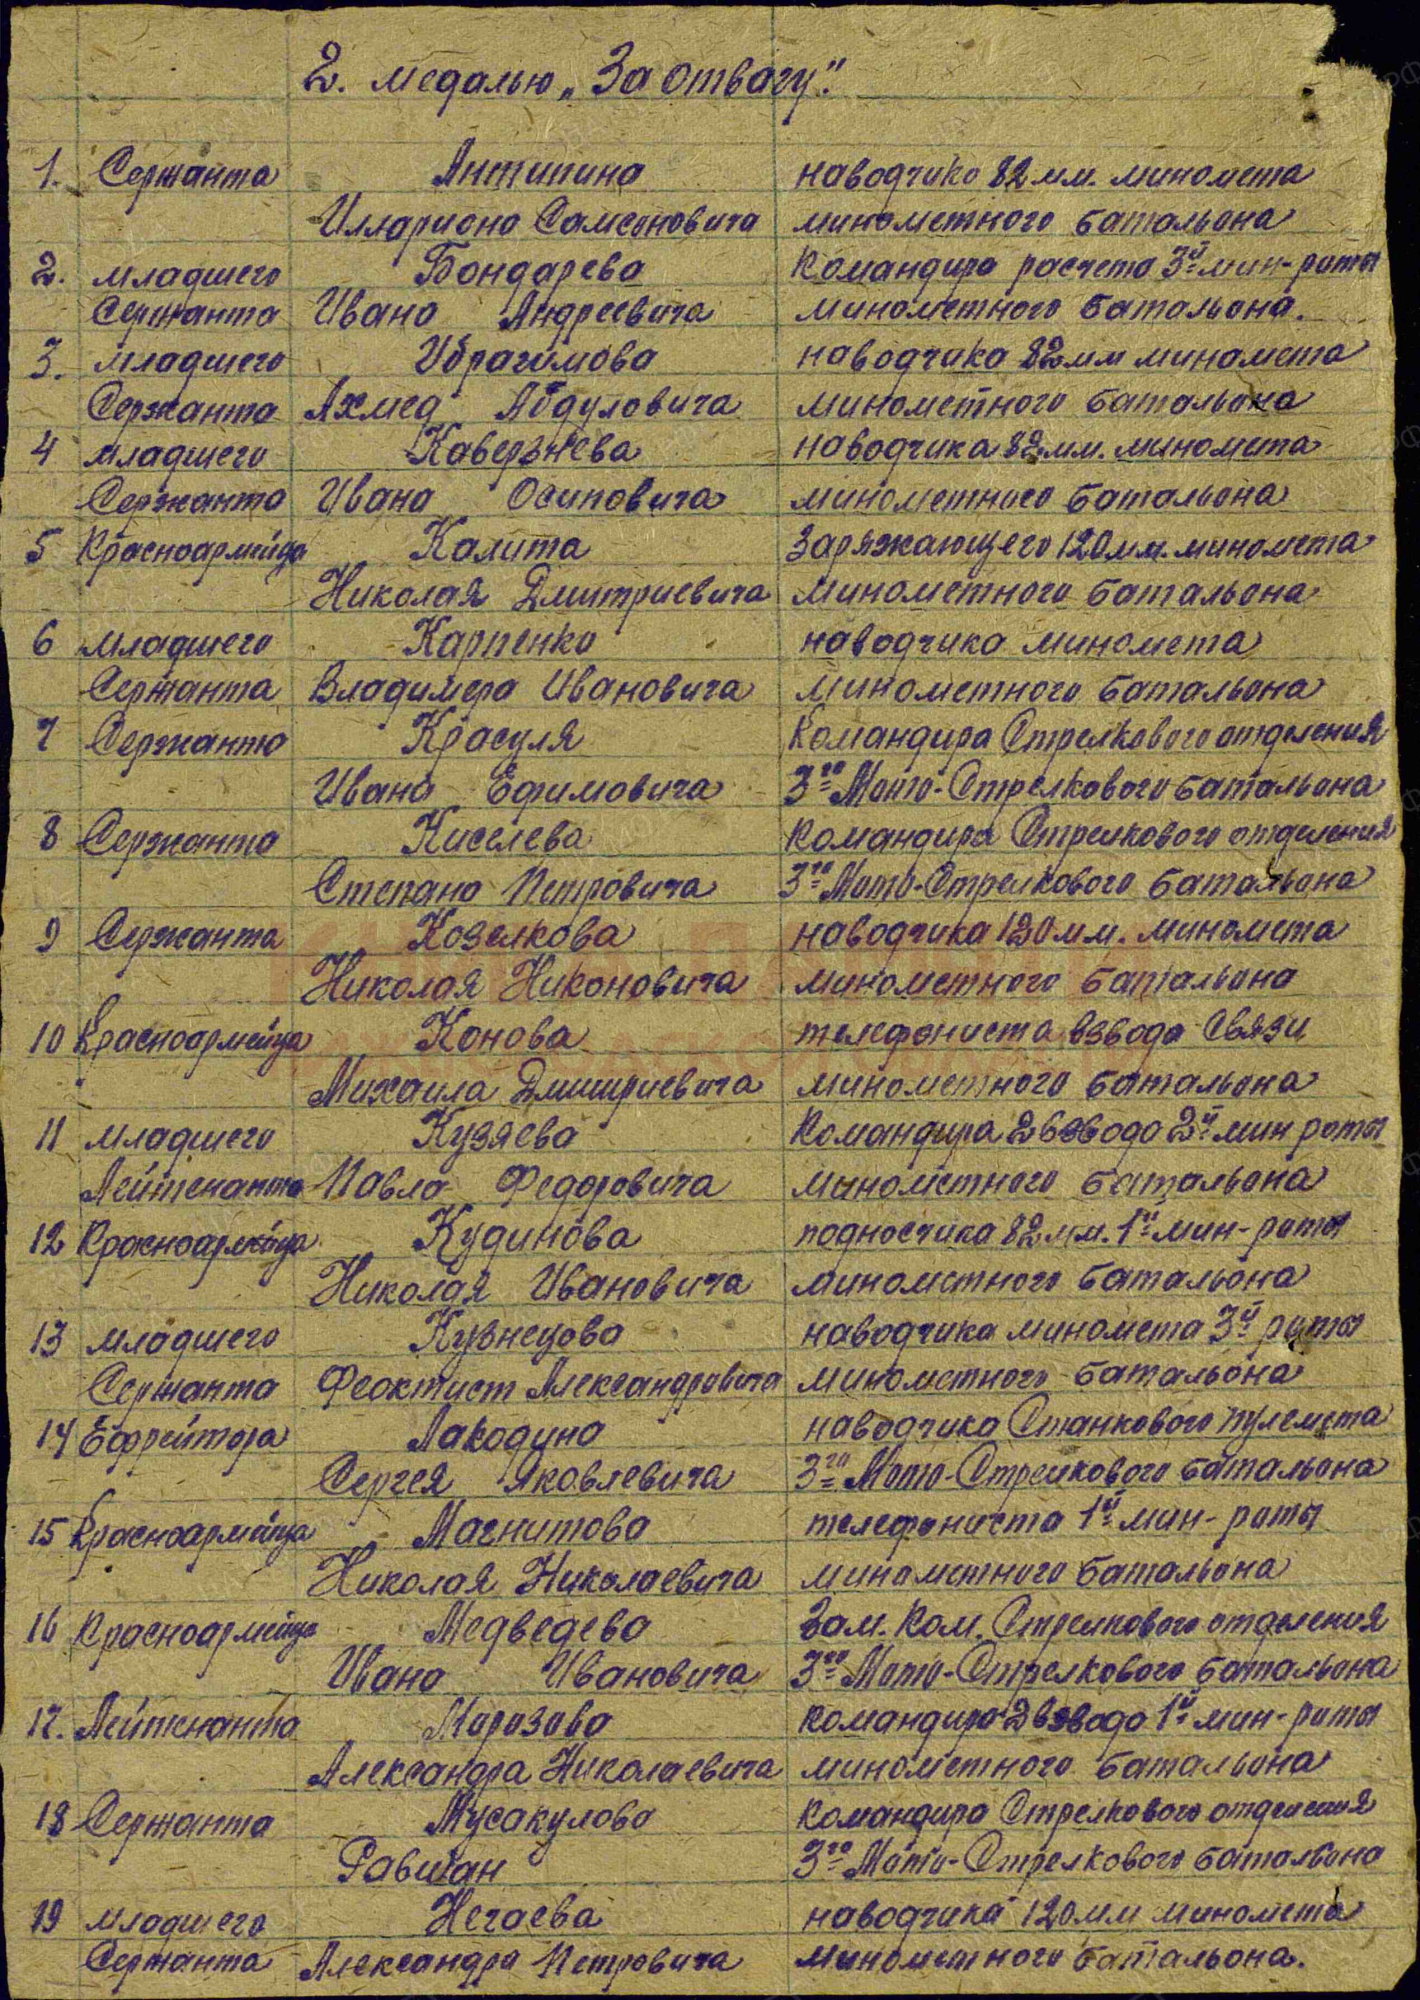 2. медалью „За отвагу".
1. Сержанта Антипина наводчика 82 мм. миномета
Иллариона Самсоновича минометного батальона
2. младшего Бондарева командира расчета 3й мин-роты
Сержанта Ивана Андреевича минометного батальона.
3. младшего Ибрагимова наводчика 82 мм миномета
Сержанта Ахмед Абдуловича минометного батальона
4 младшего Каверзнева наводчика 82 мм. миномета
Сержанта Ивана Осиповича минометного батальона
5 Красноармейца Калита Заряжающего 120 мм. миномета
Николая Дмитриевича минометного батальона
6 младшего Карпенко наводчика миномета
Сержанта Владимера Ивановича минометного батальона
7 Сержанта Красуля Командира Стрелкового отделения
Ивана Ефимовича 3го Мото-Стрелкового батальона
8 Сержанта Киселева командира Стрелкового отделения
Степана Петровича 3го Мото-Стрелкового батальона
9 Сержанта Козелкова наводчика 120 мм. миномета
Николая Никоновича минометного батальона
10 Красноармейца Конова телефониста взвода Связи
Михаила Дмитриевича минометного батальона
11 младшего Кузяева командира 2 взвода 2й мин роты
Лейтенанта Павла Федоровича минометного батальона
12 Красноармейца Кудинова подносчика 82 мм. 1й мин-роты
Николая Ивановича минометного батальона
13 младшего Кузнецова наводчика миномета 3й роты
Сержанта Феоктист Александровича минометного батальона
14 Ефрейтора Лакодина наводчика Станкового пулемета
Сергея Яковлевича 3го Мото-Стрелкового батальона
15 Красноармейца Магнитова телефониста 1й мин-роты
Николая Николаевича минометного батальона
16 Красноармейца Медведева Зам. Ком. Стрелкового отделения
Ивана Ивановича 3го Мото-Стрелкового батальона
17. Лейтенанта Морозова командира 2 взвода 1й мин-роты
Александра Николаевича минометного батальона
18 Сержанта Мусакулова командира Стрелкового отделения
Равшан 3го Мото-Стрелкового батальона
19 младшего Нечаева наводчика 120 мм миномета
Сержанта Александра Петровича минометного батальона.